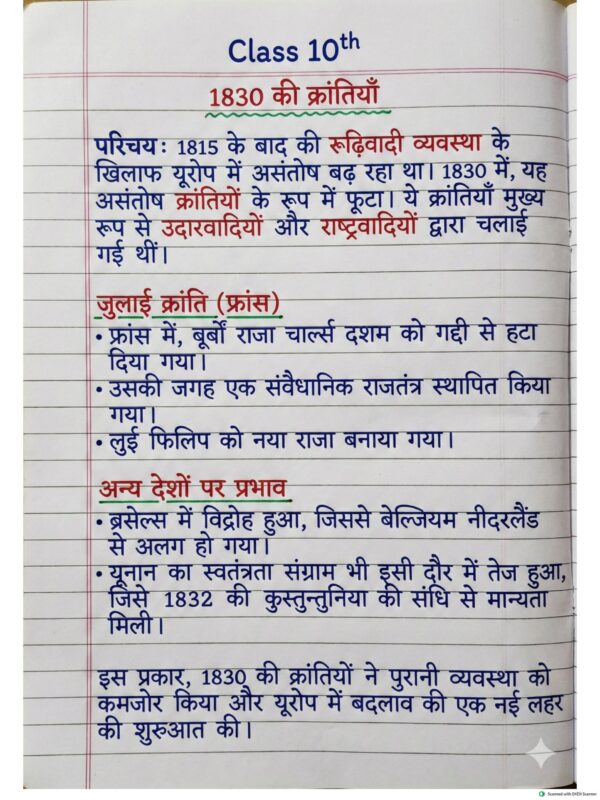 Class 10th
1830 की क्रांतियाँ
परिचय: 1815 के बाद की रूढ़िवादी व्यवस्था के
खिलाफ यूरोप में असंतोष बढ़ रहा था। 1830 में, यह
असंतोष क्रांतियों के रूप में फूटा। ये क्रांतियाँ मुख्य
रूप से उदारवादियों और राष्ट्रवादियों द्वारा चलाई
गई थीं।
जुलाई क्रांति (फ्रांस)
• फ्रांस में, बूर्बों राजा चार्ल्स दशम को गद्दी से हटा
दिया गया।
• उसकी जगह एक संवैधानिक राजतंत्र स्थापित किया
गया।
• लुई फिलिप को नया राजा बनाया गया।
अन्य देशों पर प्रभाव
• ब्रसेल्स में विद्रोह हुआ, जिससे बेल्जियम नीदरलैंड
से अलग हो गया।
• यूनान का स्वतंत्रता संग्राम भी इसी दौर में तेज हुआ,
जिसे 1832 की कुस्तुन्तुनिया की संधि से मान्यता
मिली।
इस प्रकार, 1830 की क्रांतियों ने पुरानी व्यवस्था को
कमजोर किया और यूरोप में बदलाव की एक नई लहर
की शुरुआत की।
Scanned with OKEN Scanner